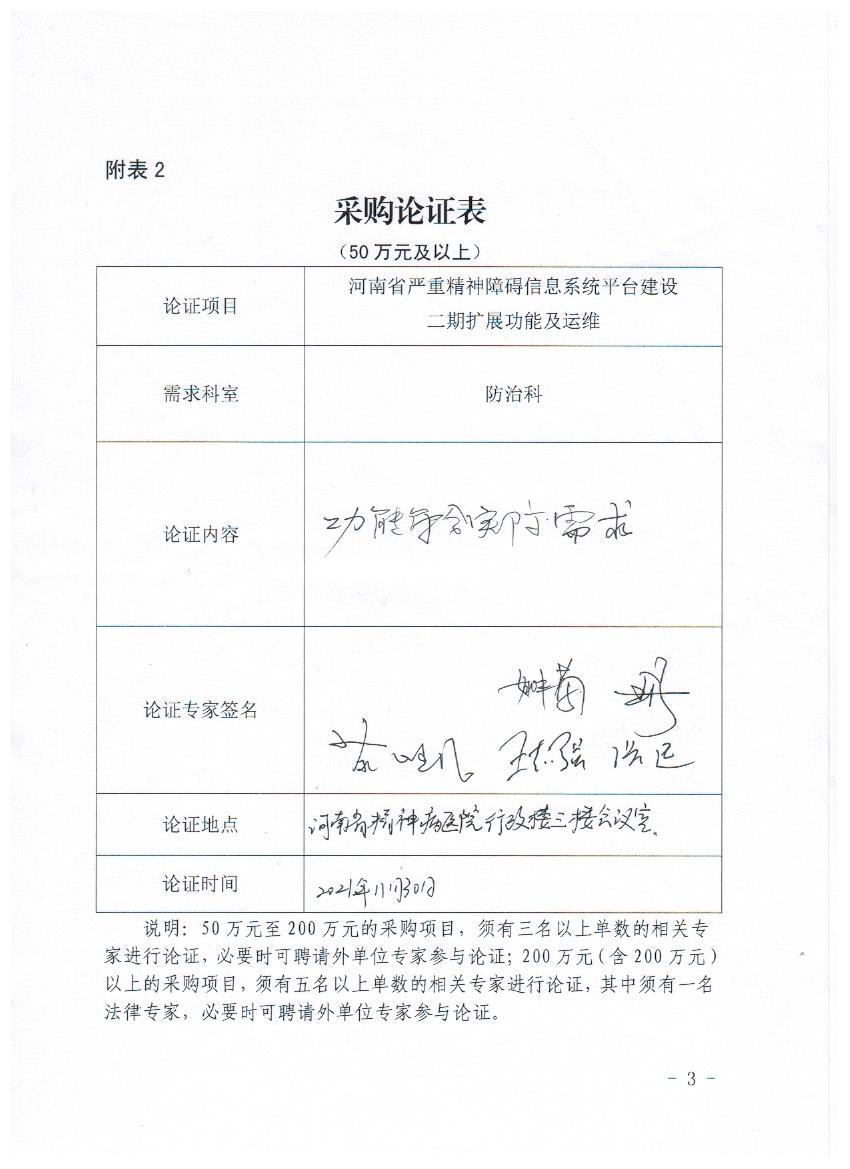 附表2
采购论证表
（50万元及以上）
论证项目
河南省严重精神障碍信息系统平台建设
二期扩展功能及运维
需求科室
防治科
论证内容
功能符合实际需求
论证专家签名
论证地点
河南省精神病医院行政楼三楼会议室.
论证时间
2021年11月30日
说明：50万元至200万元的采购项目，须有三名以上单数的相关专
家进行论证，必要时可聘请外单位专家参与论证；200万元（含200万元）
以上的采购项目，须有五名以上单数的相关专家进行论证，其中须有一名
法律专家，必要时可聘请外单位专家参与论证。
- 3 -